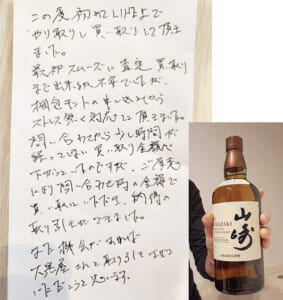 この度初めてLINEで
やり取りし買い取りして頂き
ました。
最初スムーズに査定、買取り
まで出来るか不安でしたが、
梱包キットの申し込みから
ストレス無く対応して頂きました。
問い合わせから少し時間が
経っていて買い取り金額が
下がっていたのですが、ご厚意
に問い合わせ時の金額で
買い取っていただき、納得の
取り引きができました。
また機会があれば
大黒屋さんで取り引きさせて
いただこうと思います。
YAMAZAKI
山崎